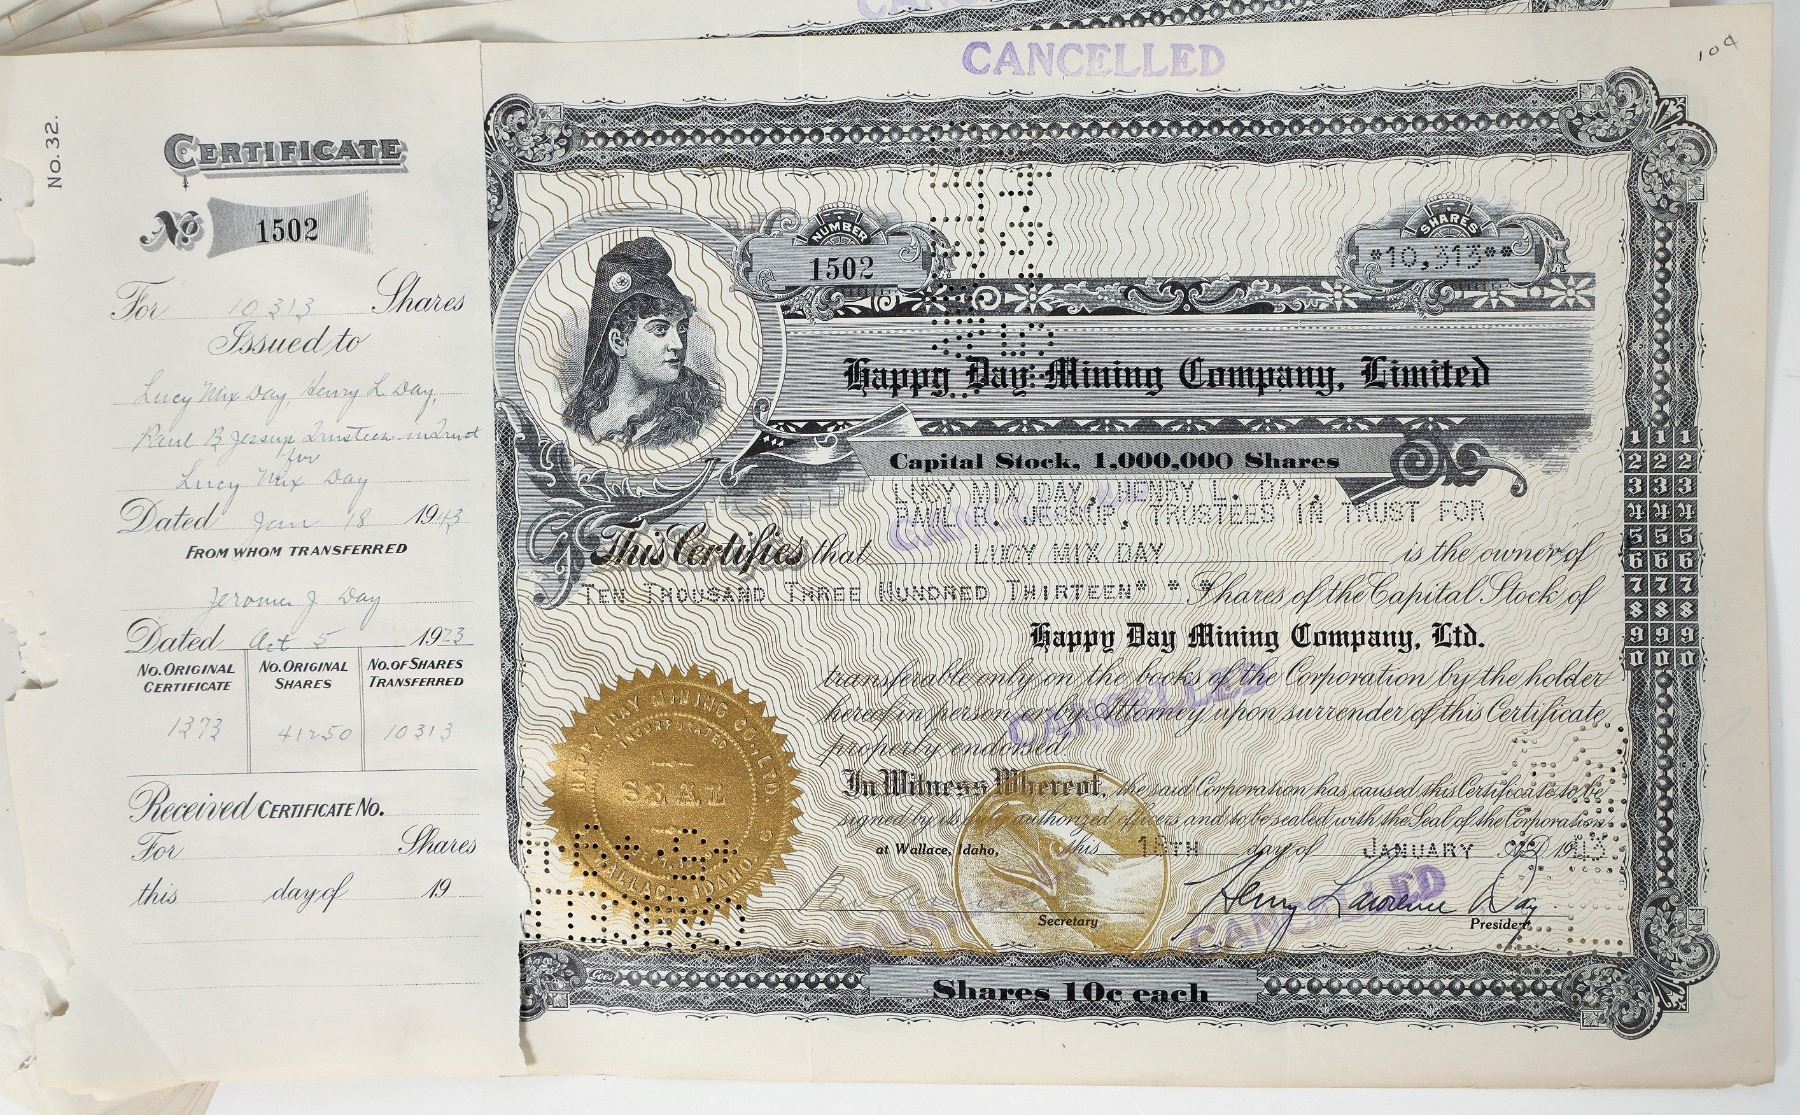 CANCELLED
10¢
No. 32.
CERTIFICATE
No 1502
For 10313 Shares
Issued to
Lucy Mix Day, Henry L Day,
Paul B Jessup Trustees in Trust
for
Lucy Mix Day
Dated Jan 18 1943
FROM WHOM TRANSFERRED
Jerome J Day
Dated Oct 5 1923
NO. ORIGINAL CERTIFICATE NO. ORIGINAL SHARES NO. OF SHARES TRANSFERRED
1373 41250 10313
Received CERTIFICATE NO.
For Shares
this day of 19
NUMBER
1502
SHARES
*10,313**
Happy Day Mining Company, Limited
Capital Stock, 1,000,000 Shares
LUCY MIX DAY, HENRY L. DAY,
PAUL B. JESSUP, TRUSTEES IN TRUST FOR
This Certifies that LUCY MIX DAY is the owner of
TEN THOUSAND THREE HUNDRED THIRTEEN* * * Shares of the Capital Stock of
Happy Day Mining Company, Ltd.
transferable only on the books of the Corporation by the holder
hereof in person or by Attorney upon surrender of this Certificate
properly endorsed
In Witness Whereof, the said Corporation has caused this Certificate to be
signed by its duly authorized officers and to be sealed with the Seal of the Corporation
at Wallace, Idaho, this 18TH day of JANUARY A.D. 1943
Henry Lawrence Day
Secretary
President
Shares 10c each
HAPPY DAY MINING CO., LTD.
INCORPORATED
SEAL
WALLACE, IDAHO
CANCELLED
CANCELLED
CANCELLED
1 1 1
2 2 2
3 3 3
4 4 4
5 5 5
6 6 6
7 7 7
8 8 8
9 9 9
0 0 0
Goes